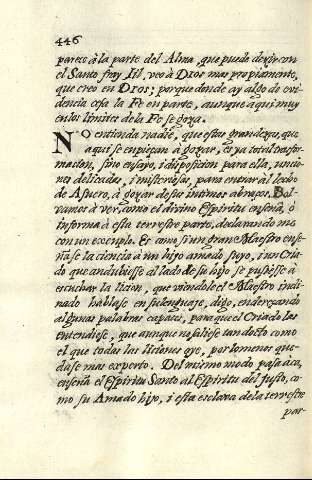 446
parece à la parte del Alma, que puede dezir con
el Santo fray Gil, veo à Dios mas propiamente,
que creo en Dios; porque donde ay algo de evi-
dencia cesa la Fe en parte, aunque aqui muy
en los limites de la Fe se goza.
NO entienda nadie, que estas grandezas, que
aqui se empiezan à gozar, es ya total trasfor-
macion, sino ensayo, i disposicion para ella, uncio-
nes delicadas, i misteriosas, para entrar al lecho
de Asuero, à gozar de sus intimos abrazos. Bol-
vamos à ver, como el divino Espiritu enseña, ò
informa à esta terrestre parte, declarando me
con un exemplo. Es como si un gran Maestro ense-
ñase la ciencia à un hijo amado suyo, i un Cria-
do que andubiese al lado de su hijo se pusiese à
escuchar la licion, que viendole el Maestro incli-
nado hablase en su lenguaje, digo, enderezando
algunas palabras capaces, para que el Criado las
entendiese, que aunque no saliese tan docto como
el que todas las liciones oye, por lo menos que-
dase mas experto. Del mismo modo pasa acà,
enseña el Espiritu Santo al Espiritu del justo, co-
mo su Amado hijo, i esta esclava de la terrestre
par-